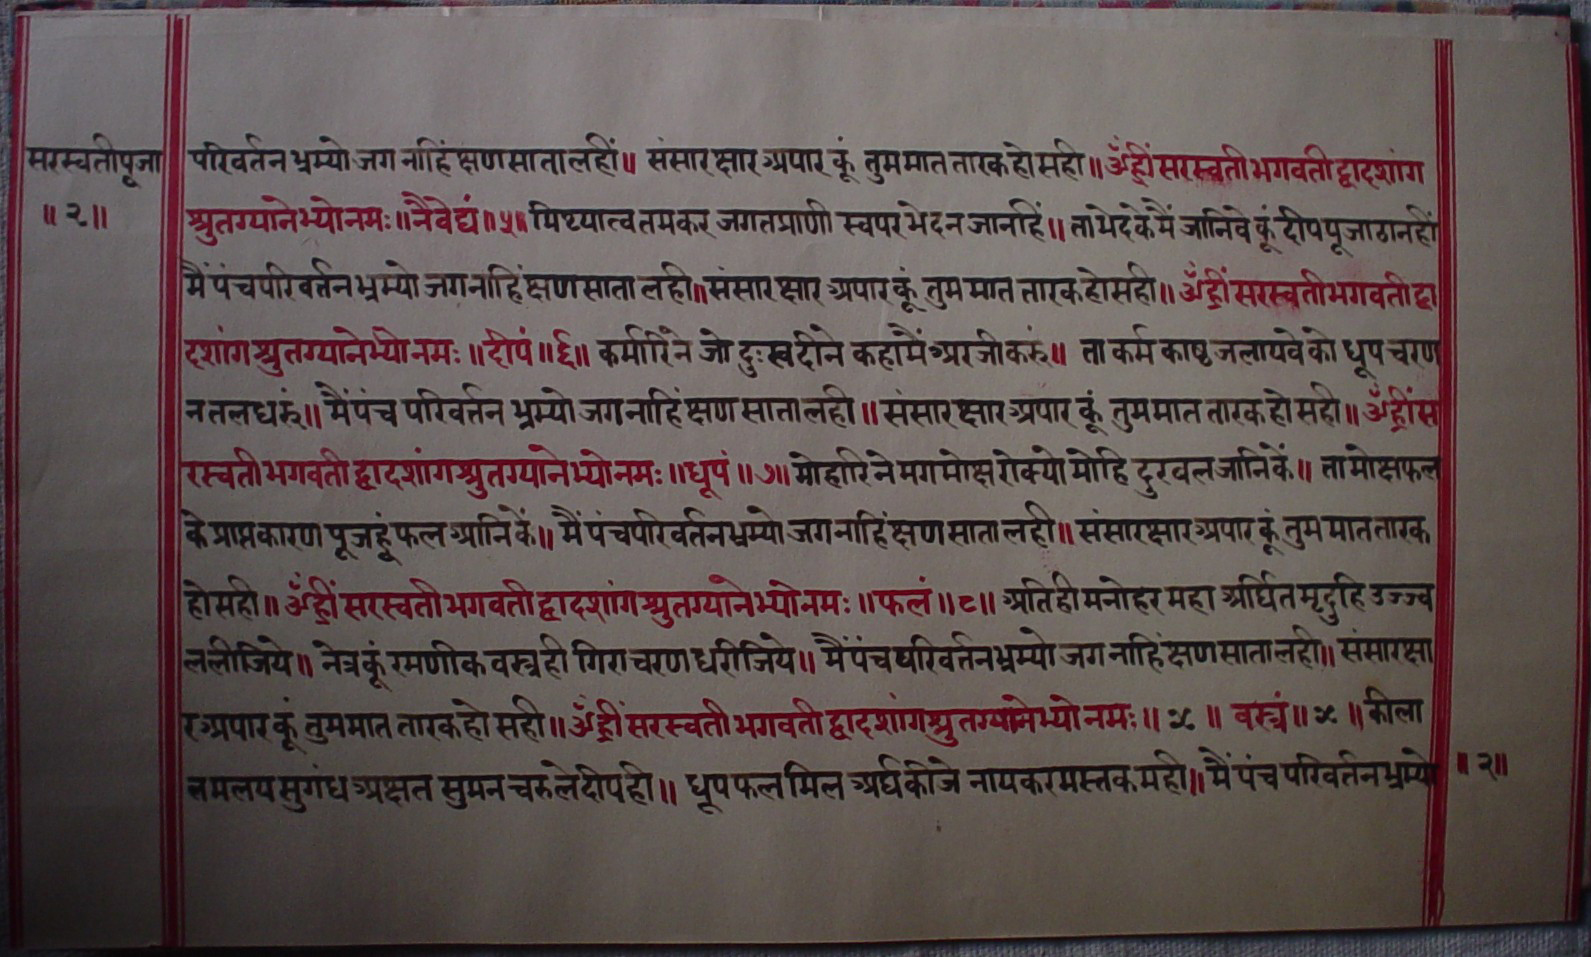 सरस्वतीपूजा
॥२॥
परिवर्तन भ्रम्यो जग नाहिं क्षण साता लहीं॥ संसार क्षार अपार कूं तुम मात तारक हो सही॥ ॐ ह्रीं सरस्वती भगवती द्वादशांग
श्रुतग्यानेभ्यो नमः॥ नैवेद्यं॥५॥ मिथ्यात्व तमकर जगत प्राणी स्वपर भेद न जानहिं॥ ता भेद के मैं जानिवे कूं दीप पूजा ठानहीं
मैं पंच परिवर्तन भ्रम्यो जग नाहिं क्षण साता लही॥ संसार क्षार अपार कूं तुम मात तारक हो सही॥ ॐ ह्रीं सरस्वती भगवती द्वा
दशांग श्रुतग्यानेभ्यो नमः॥ दीपं॥६॥ कर्मारि ने जो दुःख दीने कहा मैं अरजी करुं॥ ता कर्म काष्ठ जलायवे को धूप चरण
न तल धरुं॥ मैं पंच परिवर्तन भ्रम्यो जग नाहिं क्षण साता लही॥ संसार क्षार अपार कूं तुम मात तारक हो सही॥ ॐ ह्रीं स
रस्वती भगवती द्वादशांग श्रुतग्यानेभ्यो नमः॥ धूपं॥७॥ मोहारि ने मग मोक्ष रोक्यो मोहि दुरवल जानिकें॥ ता मोक्षफल
के प्राप्त कारण पूजहूं फल आनिकें॥ मैं पंच परिवर्तन भ्रम्यो जग नाहिं क्षण साता लही॥ संसार क्षार अपार कूं तुम मात तारक
हो सही॥ ॐ ह्रीं सरस्वती भगवती द्वादशांग श्रुतग्यानेभ्यो नमः॥ फलं॥८॥ अति ही मनोहर महा अर्घित मृदुहि उज्ज्व
ल लीजिये॥ नेत्र कूं रमणीक वस्त्र ही गिरा चरण धरीजिये॥ मैं पंच परिवर्तन भ्रम्यो जग नाहिं क्षण साता लही॥ संसार क्षा
र अपार कूं तुम मात तारक हो सही॥ ॐ ह्रीं सरस्वती भगवती द्वादशांग श्रुतग्यानेभ्यो नमः॥ ५॥ वस्त्रं॥ ५॥ कीला
लमलय सुगंध अक्षत सुमन चरु ले दीपही॥ धूप फल मिल अर्घ कीजे नाय कर मस्तक मही॥ मैं पंच परिवर्तन भ्रम्यो
॥२॥